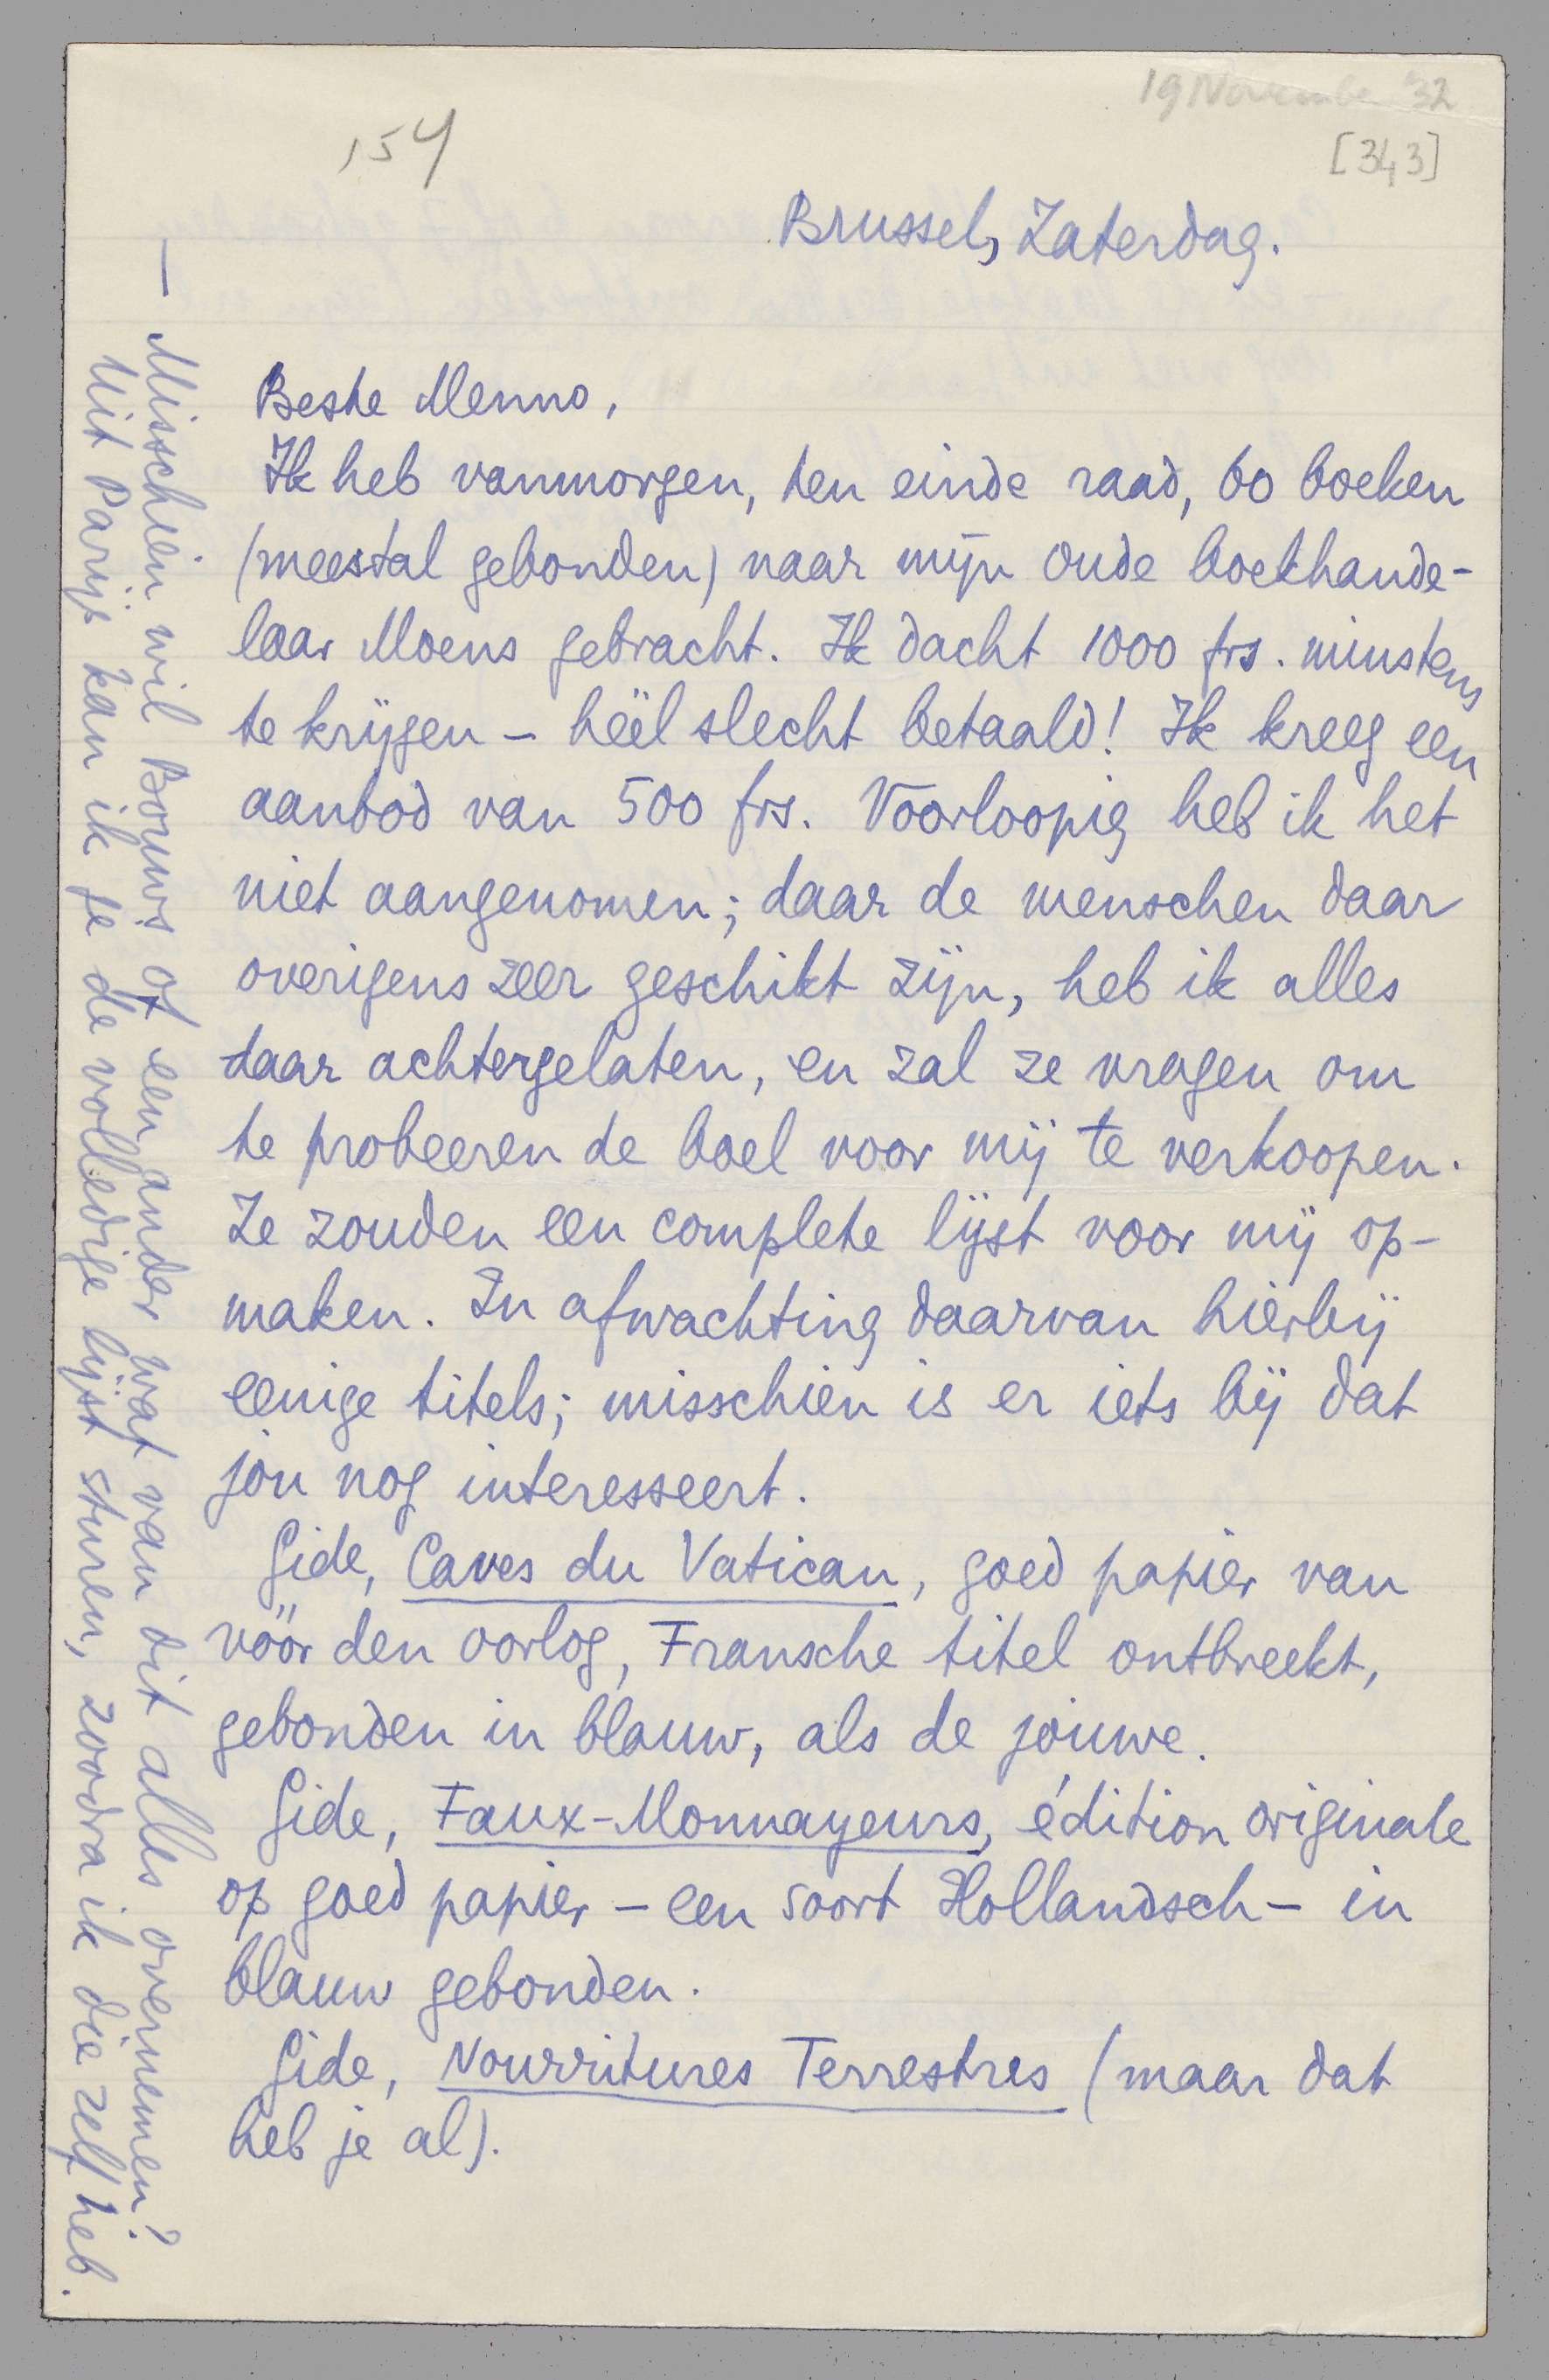 19 November '32
154
[343]
Brussel, Zaterdag.
Beste Menno,
Ik heb vanmorgen, ten einde raad, 60 boeken
(meestal gebonden) naar mijn oude boekhande-
laar Moens gebracht. Ik dacht 1000 frs. minstens
te krijgen – héél slecht betaald! Ik kreeg een
aanbod van 500 frs. Voorloopig heb ik het
niet aangenomen; daar de menschen daar
overigens zeer geschikt zijn, heb ik alles
daar achtergelaten, en zal ze vragen om
te probeeren de boel voor mij te verkoopen.
Ze zouden een complete lijst voor mij op-
maken. In afwachting daarvan hierbij
eenige titels; misschien is er iets bij dat
jou nog interesseert.
Gide, Caves du Vatican, goed papier van
vóór den oorlog, Fransche titel ontbreekt,
gebonden in blauw, als de jouwe.
Gide, Faux-Monnayeurs, édition originale
op goed papier – een soort Hollandsch – in
blauw gebonden.
Gide, Nourritures Terrestres (maar dat
heb je al).
— Misschien wil Bouws of een ander wat van dit alles overnemen?
Uit Parijs kan ik je de volledige lijst sturen, zoodra ik die zelf heb.